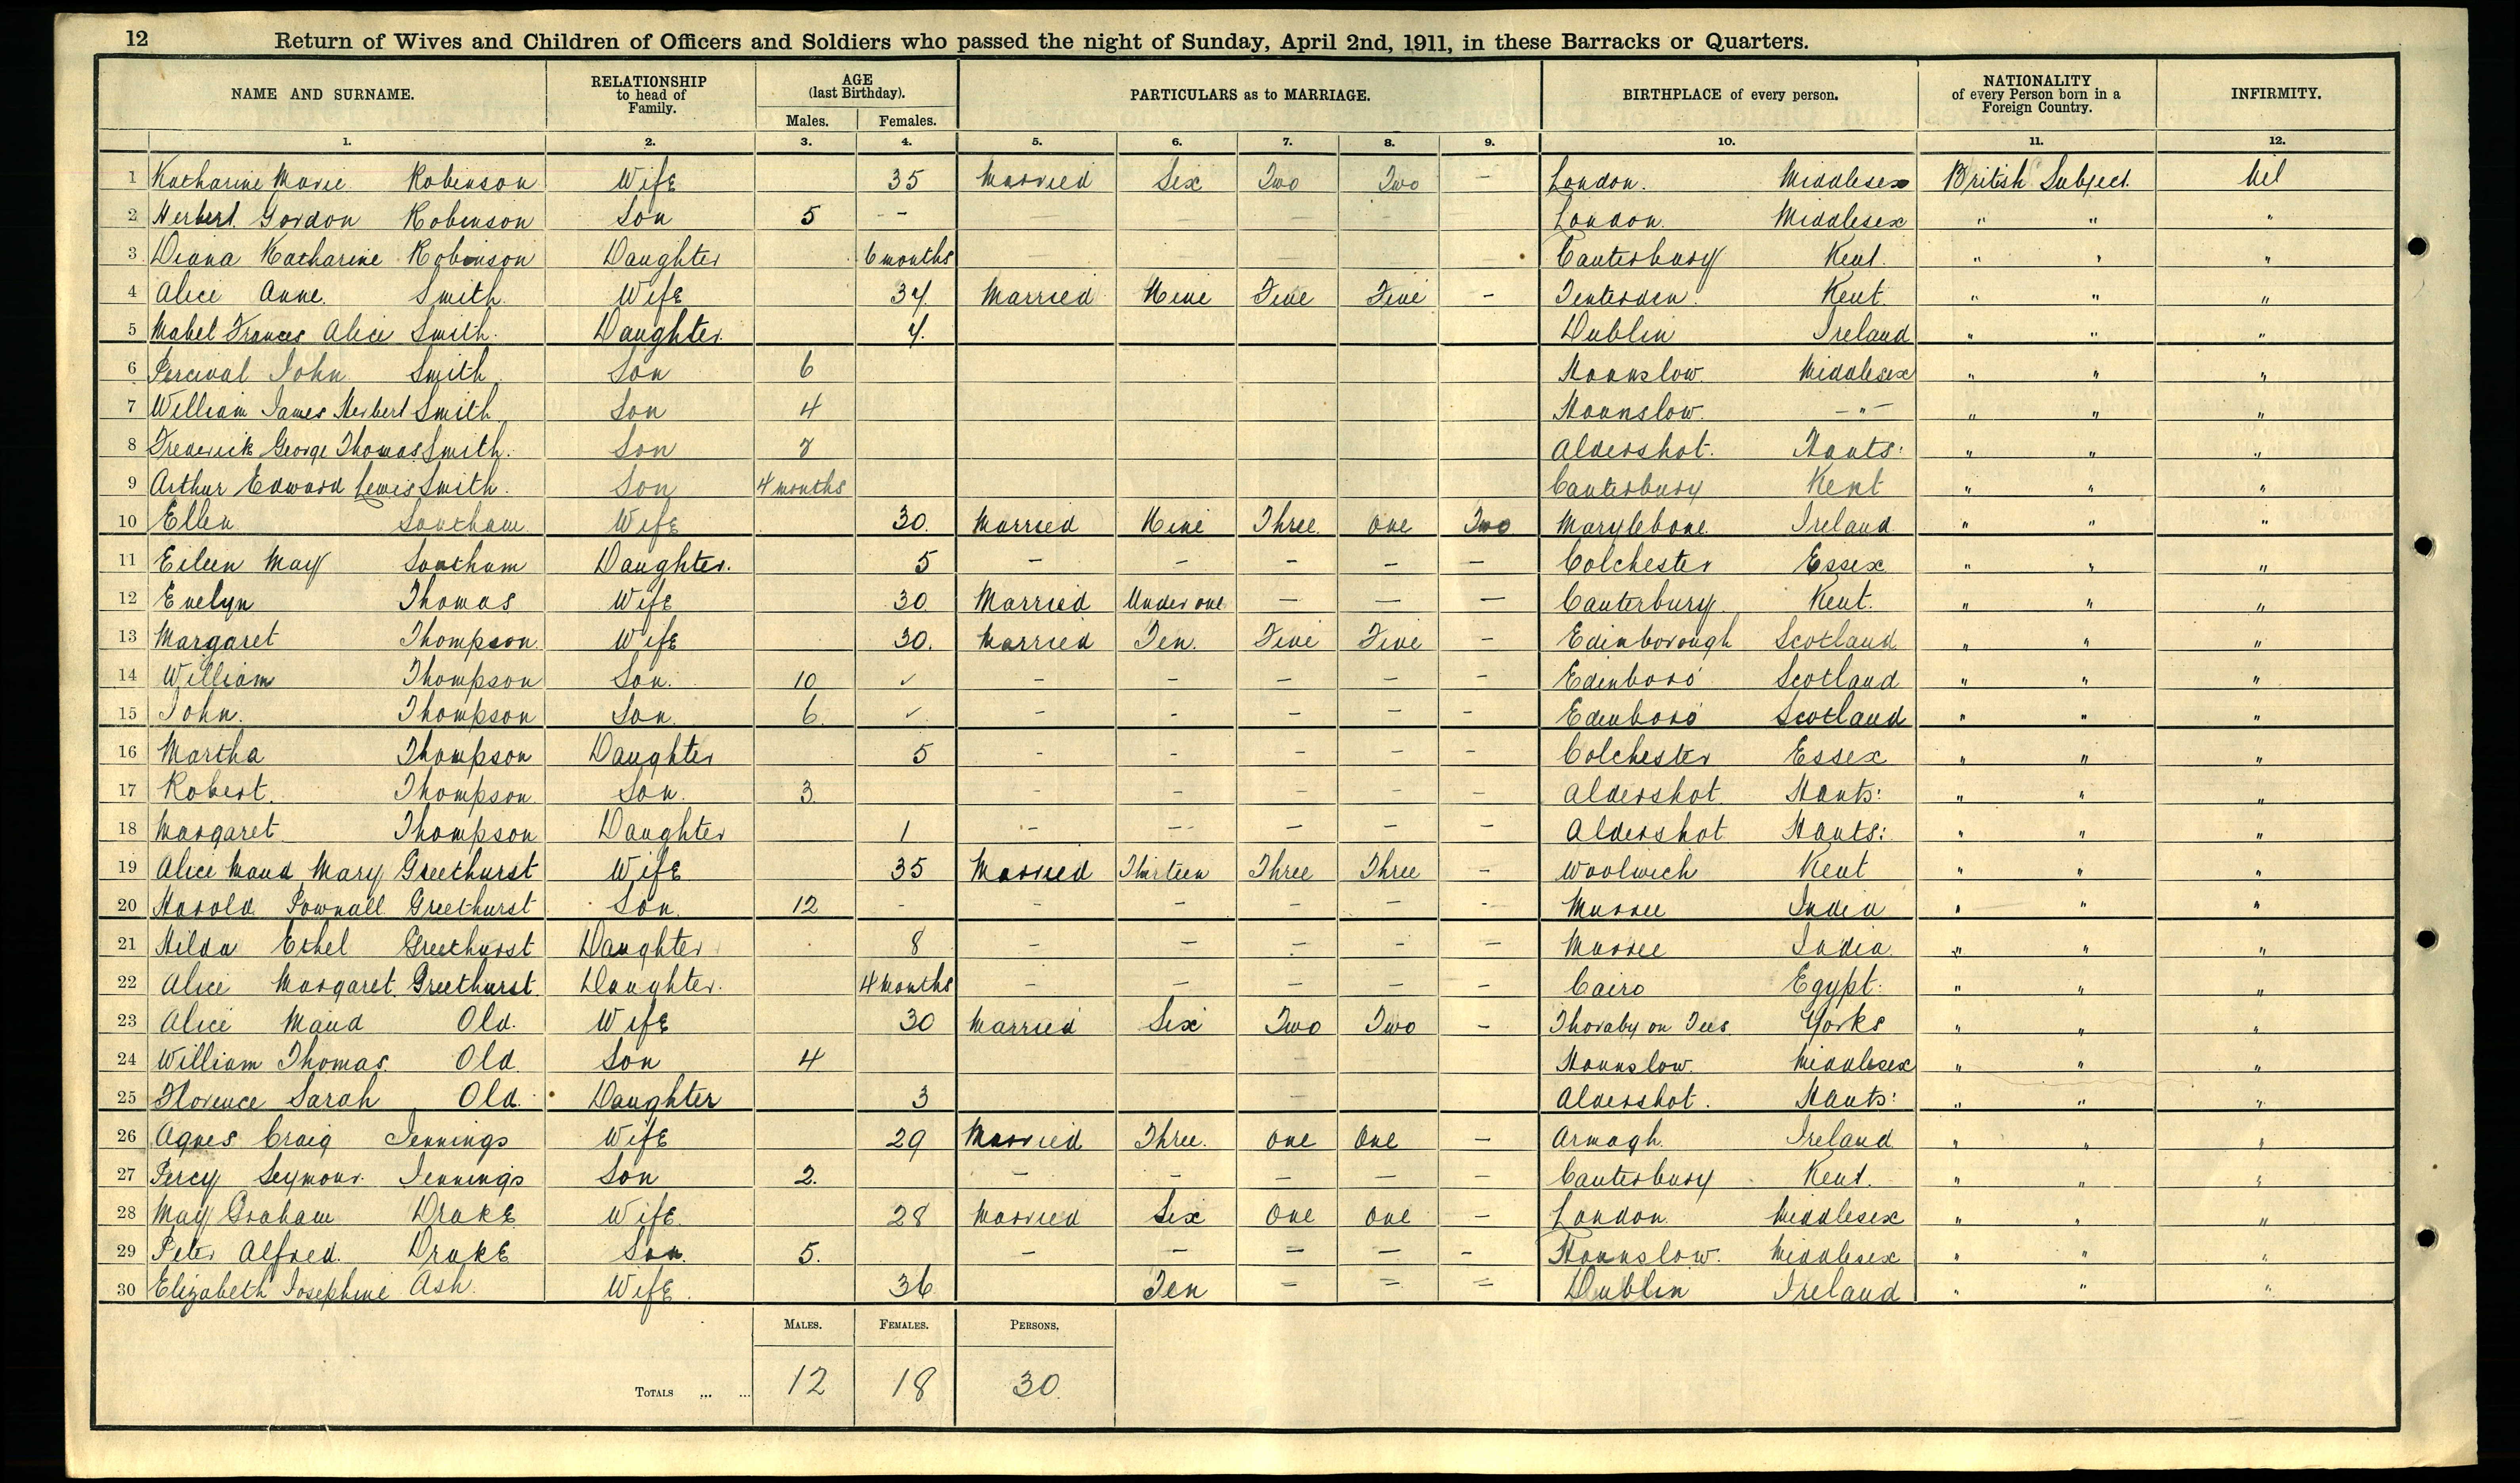 12 Return of Wives and Children of Officers and Soldiers who passed the night of Sunday, April 2nd, 1911, in these Barracks or Quarters.
NAME AND SURNAME. RELATIONSHIP to head of Family. AGE (last Birthday). Males. Females. PARTICULARS as to MARRIAGE. BIRTHPLACE of every person. NATIONALITY of every Person born in a Foreign Country. INFIRMITY.
1. 2. 3. 4. 5. 6. 7. 8. 9. 10. 11. 12.
1 Katharine Marie Robinson Wife 35 Married Six Two Two - London. Middlesex British Subject. Nil
2 Herbert Gordon Robinson Son 5 - - London. Middlesex " " "
3 Diana Katharine Robinson Daughter 6 months Canterbury Kent. " " "
4 Alice Anne. Smith. Wife 34. Married Nine Five Five - Tenterden. Kent. " " "
5 Mabel Frances Alice Smith. Daughter. 7. Dublin Ireland " " "
6 Percival John Smith. Son 6 Hounslow. Middlesex " " "
7 William James Herbert Smith Son 4 Hounslow. - " - " " "
8 Frederick George Thomas Smith. Son Aldershot. Hants: " " "
9 Arthur Edward Lewis Smith. Son 4 months Canterbury Kent " " "
10 Ellen Southam. Wife 30. Married Nine Three. One Two Marylebone Ireland " " "
11 Eileen May Southam Daughter. 5 - - - - - Colchester Essex " " "
12 Evelyn Thomas Wife 30 Married Under one - - - Canterbury. Kent. " " "
13 Margaret Thompson. Wife 30. Married Ten. Five Five - Edinborough Scotland " " "
14 William Thompson Son. 10 ✓ - - - - - Edinboro' Scotland " " "
15 John. Thompson Son. 6. ✓ - - - - - Edinboro' Scotland " " "
16 Martha Thompson Daughter 5 - - - - - Colchester Essex " " "
17 Robert. Thompson Son. 3 - - - - - Aldershot. Hants: " " "
18 Margaret Thompson Daughter 1 - - - - - Aldershot Hants: " " "
19 Alice Maud Mary Greethurst Wife 35 Married Thirteen Three Three - Woolwich Kent " " "
20 Harold Pownall Greethurst Son. 12 - - - - - - Murree India " " "
21 Hilda Ethel Greethurst Daughter 8 - - - - - Murree India " " "
22 Alice Margaret Greethurst Daughter. 4 months - - - - - Cairo Egypt. " " "
23 Alice Maud Old. Wife 30 Married Six Two Two - Thoraby on Tees Yorks " " "
24 William Thomas. Old Son 4 Hounslow. Middlesex " " "
25 Florence Sarah Old. Daughter 3 Aldershot. Hants: " " "
26 Agnes Craig Jennings Wife 29 Married Three. One One - Armagh. Ireland " " "
27 Percy Seymour. Jennings Son 2. - - - - - Canterbury Kent. " " "
28 May Graham Drake Wife. 28 Married Six One One - London Middlesex " " "
29 Peter Alfred. Drake Son. 5. - - - - - Hounslow. Middlesex " " "
30 Elizabeth Josephine Ash. Wife. 36 Ten - - - Dublin Ireland " " "
MALES. FEMALES. PERSONS.
TOTALS ... ... 12 18 30